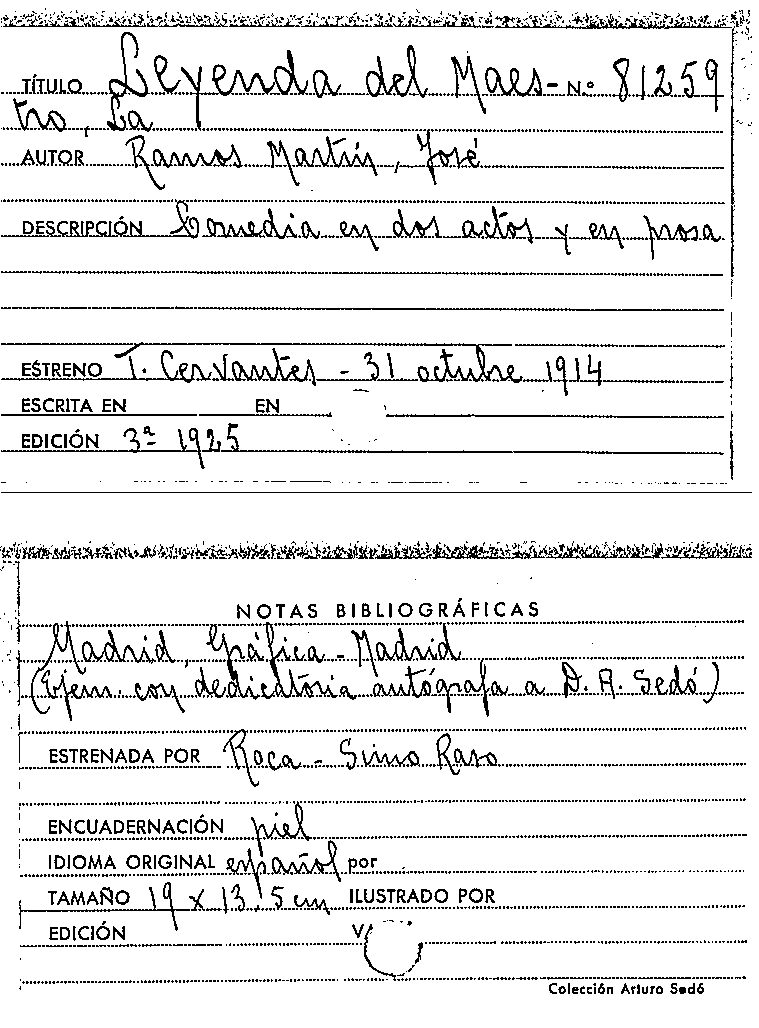 TÍTULO Leyenda del Maes- N.º 81259
tro, La
AUTOR Ramos Martín, José
DESCRIPCIÓN Comedia en dos actos y en prosa
ESTRENO T. Cervantes - 31 octubre 1914
ESCRITA EN EN
EDICIÓN 3ª 1925
NOTAS BIBLIOGRÁFICAS
Madrid, Gráfica - Madrid
(Ejem. con dedicatoria autógrafa a D. A. Sedó)
ESTRENADA POR Roca - Simó Raso
ENCUADERNACIÓN piel
IDIOMA ORIGINAL español por
TAMAÑO 19 x 13,5 cm ILUSTRADO POR
EDICIÓN
Colección Arturo Sedó